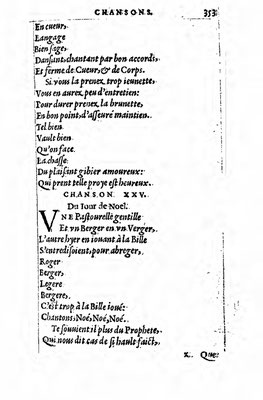 CHANSONS. 353
En cueur,
Langage
Bien sage,
Dansant, chantant par bon accords,
Et ferme de Cueur, & de Corps.
Si vous la prenez trop ieunette,
Vous en aurez peu d'entretien:
Pour durer prenez la brunette,
En bon point, d'asseuré maintien.
Tel bien
Vault bien
Qu'on face
La chasse
Du plaisant gibier amoureux:
Qui prent telle proye est heureux.
CHANSON XXV.
Du Iour de Noel.
VNE Pastourelle gentille
Et vn Berger en vn Verger,
L'autre hyer en iouant à la Bille
S'entredisoient, pour abreger,
Roger
Berger,
Legere
Bergere,
C'est trop à la Bille ioué:
Chantons, Noé, Noé, Noé.
Te souuient il plus du Prophete,
Qui nous dit cas de si hault faict,
Z. Que